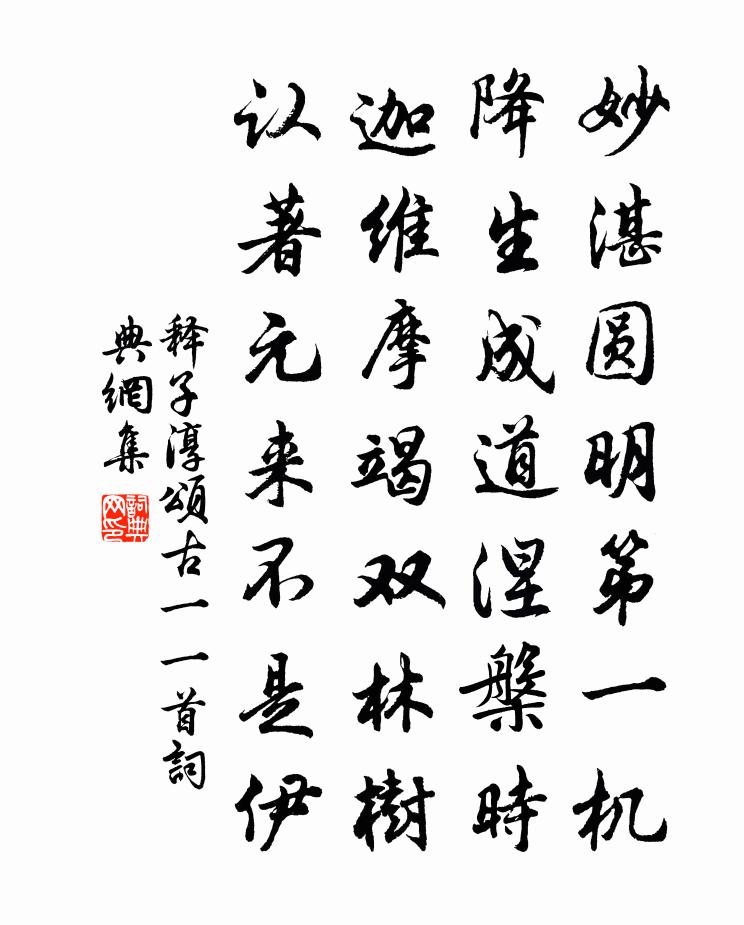 妙湛圆明第一机
降生成道涅槃时
迦维摩竭双林樹
认著元来不是伊
释子淳頌古一一首詞
典網集
詞典
网印